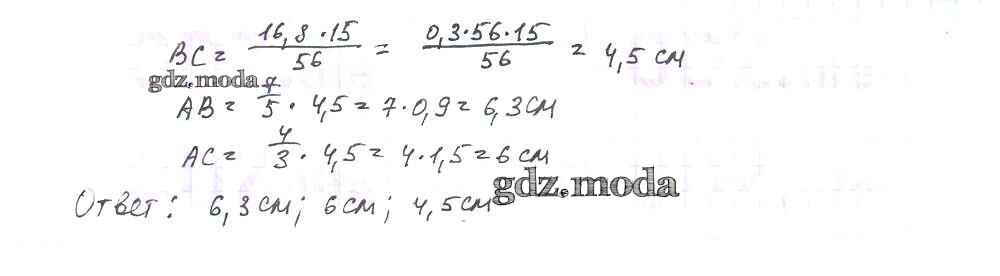 BC = 16,8·15/56 = 0,3·56·15/56 = 4,5 см
gdz.moda
AB = 7/5 · 4,5 = 7·0,9 = 6,3 см
AC = 4/3 · 4,5 = 4·1,5 = 6 см
gdz.moda
Ответ: 6,3 см; 6 см; 4,5 см